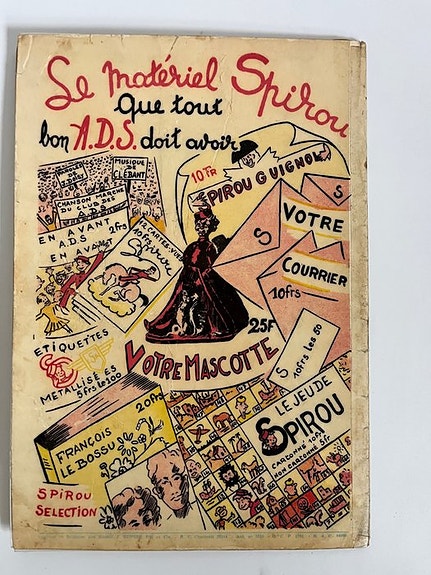 Le matériel Spirou
Que tout
bon A.D.S. doit avoir
MUSIQUE
DE
CLÉBANT
CHANSON MARCHE
DU CLUB DES
EN AVANT
A.D.S
EN AVANT
2frs
10frs
Spirou
10FR
SPIROU GUIGNOL
S
VOTRE
COURRIER
10frs
S
25F
VOTRE MASCOTTE
S
10frs les 50
ETIQUETTES
METALLISÉES
5frs les 100
20frs
FRANÇOIS
LE BOSSU
SPIROU
SELECTION
LE JEU DE
SPIROU
CARTONNÉ 10frs
NON CARTONNÉ 5fr